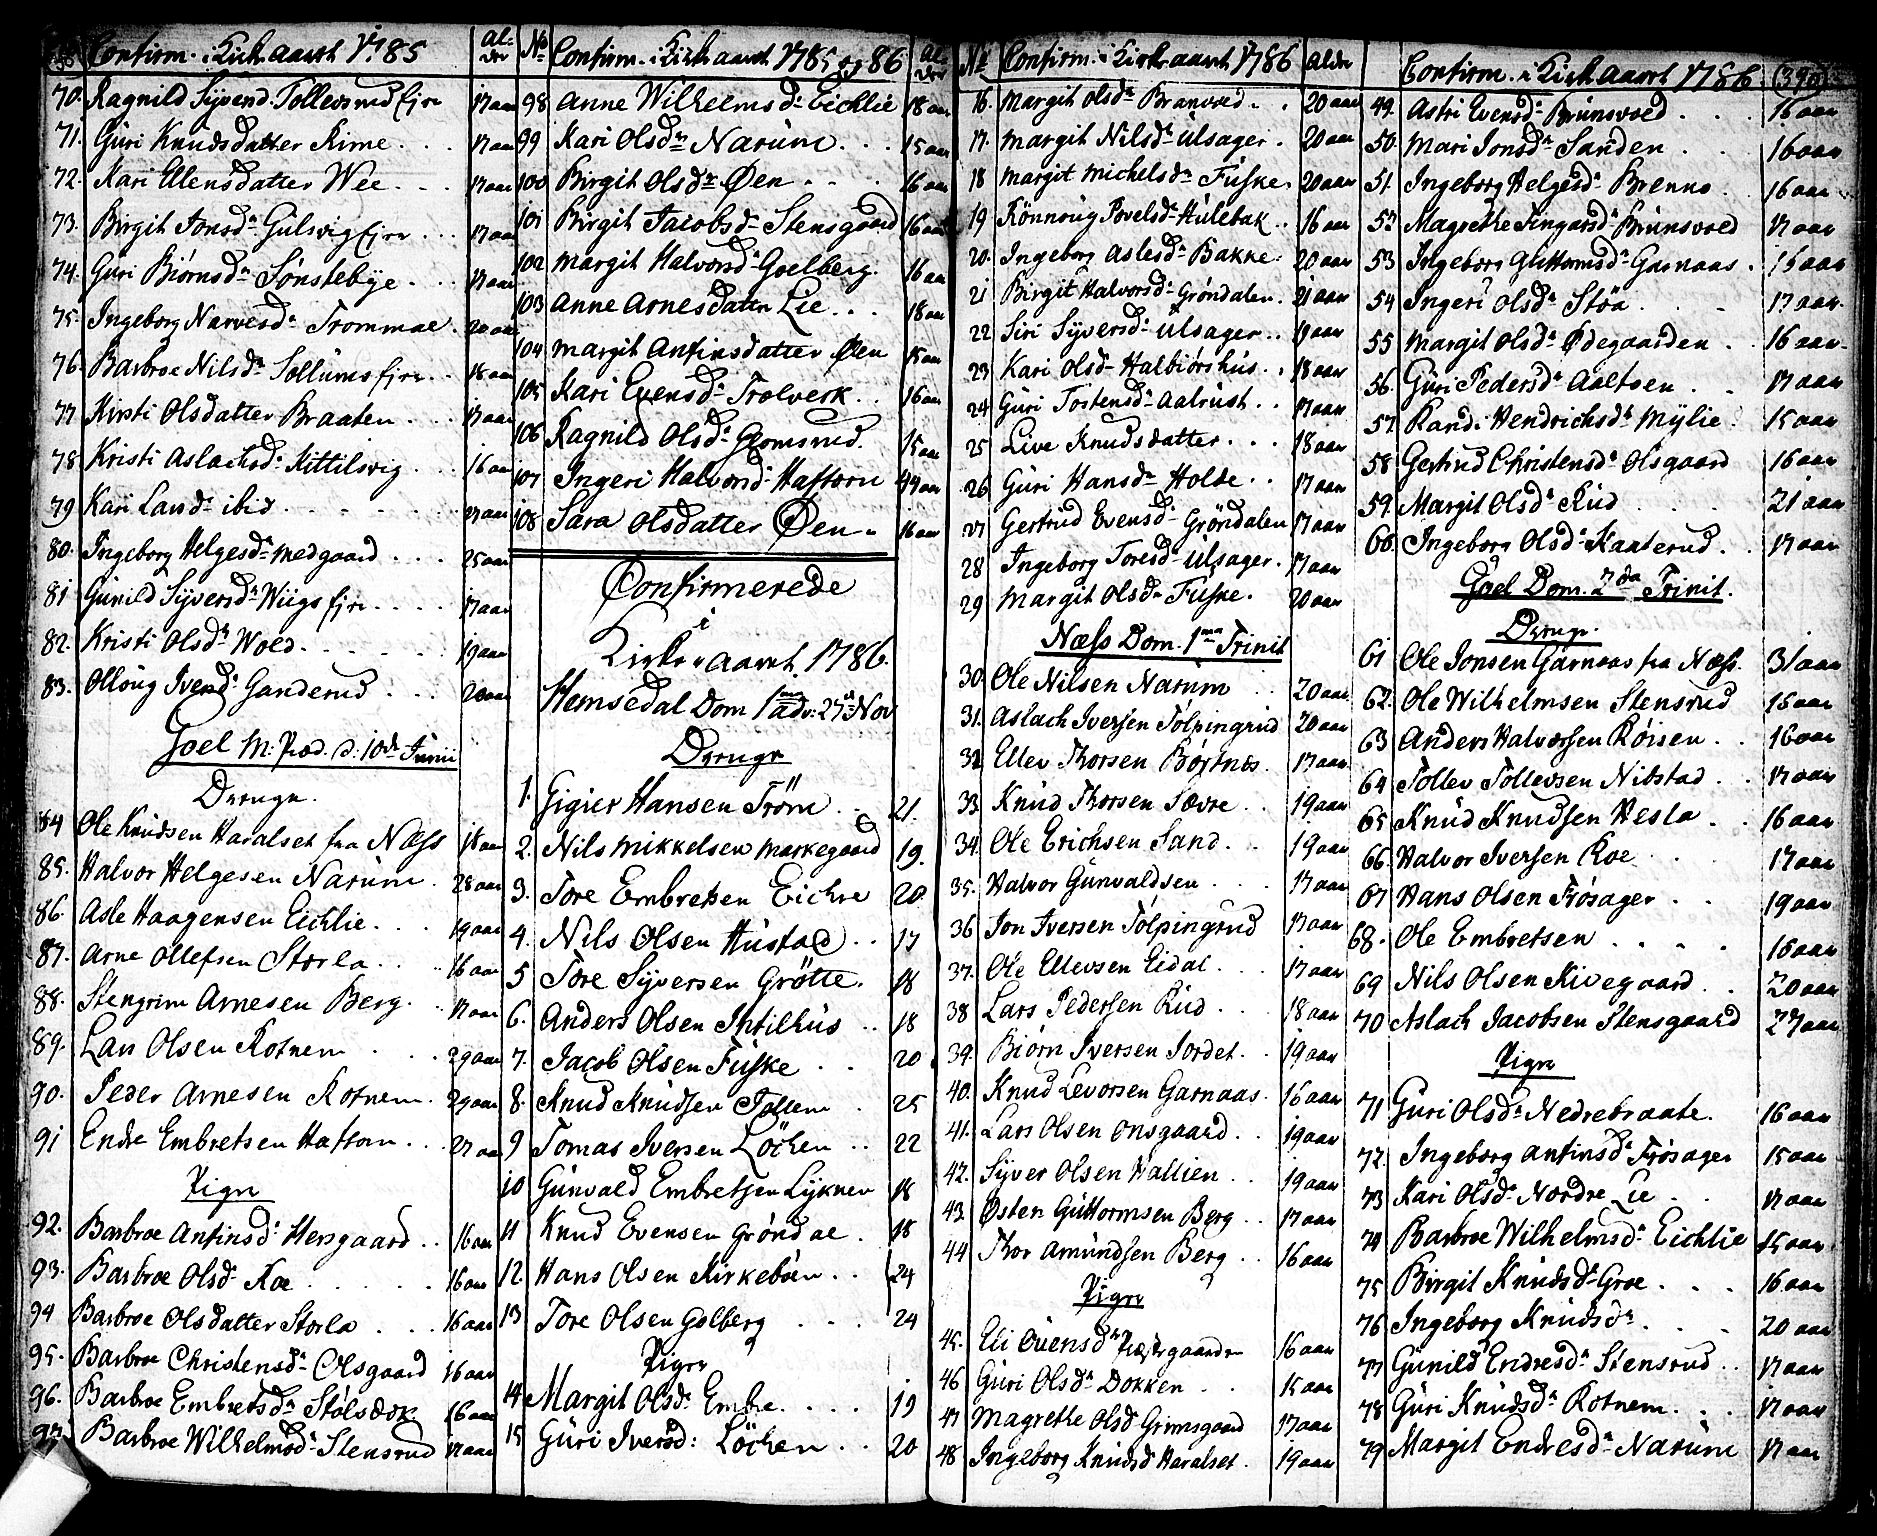 Confirm. i Kirk aaret 1785 Alder
70. Ragnild Syversd. Tollevsrud Ejer 17 aar
71. Guri Knudsdatter Rime 17 aar
72. Kari Ellensdatter Wee 17 aar
73. Birgit Jonsd. Gulsvig Ejer 17 aar
74. Guri Biørnsd. Sønstebye 17 aar
75. Ingeborg Narvesd. Trommae 20 aar
76. Barbroe Nilsd. Sollums Ejer 18 aar
77 Kirsti Olsdatter Braaten 17 aar
78 Kristi Aslachsd. Kittilsvig 16 aar
79 Kari Larsd. ibid 17 aar
80. Ingeborg Helgesd. Medgaard 25 aar
81 Gunild Syversd. Wiigs Ejer 17 aar
82. Kristi Olsd. Wold 19 aar
83. Olloug Ivend. Ganderud 20 aar
Goel M: Præd. d. 10de Junii
Drenge.
84 Ole Knudsen Haralset fra Næss 18 aar
85. Halvor Helgesen Narum 28 aar
86. Asle Haagensen Eichlie 19 aar
87. Arne Ollefsen Storla 16 aar
88. Stengrim Arnesen Berg 17 aar
89. Lars Olsen Rotnem 29 aar
90. Peder Arnesen Rotnem 29 aar
91 Endre Embretsen Haftorn 27 aar
Pigr
92. Barbroe Anfinsd. Hersgaard 16 aar
93. Barbroe Olsd. Roe 16 aar
94 Barbroe Olsdatter Storla 16 aar
95. Barbroe Christensd. Olsgaard 16 aar
96. Barbroe Embretsd. Stølsdok 16 aar
97 Barbroe Wilhelmsd. Stensrud 17 aar
No Confirm. i Kirk aaret 1785 og 86 Alder
98 Anne Wilhelmsd. Eichlie 18 aar
99 Kari Olsdr Narum 15 aar
100 Birgit Olsdr Øen 16 aar
101 Birgit Jacobsd. Stensgaard 16 aar
102 Margit Halvorsd. Goelberg 16 aar
103 Anne Arnesdatter Lie 18 aar
104 Margit Anfinsdatter Øen 15 aar
105 Kari Evensd. Trolverk 16 aar
106 Ragnild Olsd. Glomsrud 15 aar
107 Ingeri Halvorsd. Haftorn 44 aar
108 Sara Olsdatter Øen 16 aar
Confirmerede
i
Kirke aaret 1786.
Hemsedal Dom 1ma adv: 27de Nov
Drenge
1. Gigier Hansen Trøm 21.
2. Nils Mikkelsen Markegaard 19.
3. Tore Embretsen Eichre 20
4. Nils Olsen Hustad 17
5 Tore Syversen Grøtte 18
6. Anders Olsen Intilhus 18
7. Jacob Olsen Fuske 20
8. Knud Knudsen Tollem 25
9 Tomas Iversen Løchen 22
10 Gunvald Embretsen Lykner 18
11 Knud Evensen Grøndae 18
12. Hans Olsen Kirkebøen 24
13 Tore Olsen Golberg 24
Pigr
14 Margit Olsd. Embre 19
15 Guri Iversd: Løchen 20
No Confirm. i Kirk aaret 1786 Alder
16. Margit Olsdr Branvold 20 aar
17. Margit Nilsd. Ulsager 20 aar
18 Margit Michelsdr Fuske 20 aar
19 Rønnoug Povelsd. Hulebak 16 aar
20. Ingeborg Aslesd. Bakke 20 aar
21 Birgit Halvorsd. Grøndalen 21 aar
22 Siri Syversd. Ulsager 19 aar
23 Kari Olsd. Halbiørshus 18 aar
24 Guri Tostensd. Aalrust 17 aar
25 Live Knudsdatter 18 aar
26 Guri Hansdr Holde 17 aar
27 Gertrud Evensd. Grøndalen 17 aar
28 Ingeborg Toresd. Ulsager 17 aar
29 Margit Olsdr Fuske 20 aar
Næss Dom. 1ma Trinit
30. Ole Nilsen Narum 20 aar
31. Aslach Iversen Tolpingrud 20 aar
32 Ellev Thorsen Børtnes 17 aar
33 Knud Thorsen Sævre 19 aar
34. Ole Erichsen Sand 19 aar
35. Halvor Gunvaldsen 17 aar
36 Jon Iversen Tolpingrud 17 aar
37. Ole Ellevsen Eidal 17 aar
38 Lars Pedersen Rud 18 aar
39. Biørn Iversen Jordet 19 aar
40. Knud Levorsen Garnaas 16 aar
41. Lars Olsen Onsgaard 19 aar
42. Syver Olsen Hallien 19 aar
43. Østen Guttormsen Berg 17 aar
44 Thor Amundsen Berg 16 aar
Pigr
45. Eli Evensd. Præstegaarden 16 aar
46 Guri Olsd. Dokken 15 aar
47 Magrethe Olsd Grimsgaard 17 aar
48 Ingeborg Knudsd Haralset 19 aar
Confirm. i Kirk aaret 1786. 390
49. Astri Evensd. Brunsvold 16 aar
50. Mari Jonsdr Sanden 16 aar
51. Ingeborg Helgesd. Brenno 16 aar
52 Magrethe Fingarsd. Brunsvold 17 aar
53 Ingeborg Guttormsd. Garnaas 15 aar
54 Ingeri Olsdr Støa 17 aar
55 Margit Olsdr Ødegaarden 16 aar
56. Guri Pedersdr Aaltoen 17 aar
57. Rand. Hendrichsd. Mylie 15 aar
58 Gertrud Christensd. Olsgaard 16 aar
59. Margit Olsdr Rud 21 aar
60. Ingeborg Olsd. Kaaterud 17 aar
Goel Dom. 2da Trinit.
Drenge.
61 Ole Jonsen Garnaas fra Næss. 31 aar
62. Ole Wilhelmsen Stensrud 15 aar
63 Anders Halvorsen Røisen 16 aar
64 Tollev Tollevsen Nibstad 17 aar
65 Knud Knudsen Hesla 16 aar
66. Halvor Iversen Roe 17 aar
67 Hans Olsen Frøsager 19 aar
68. Ole Embretsen 15 aar
69 Nils Olsen Kivegaard 20 aar
70 Aslach Jacobsen Stensgaard 27 aar
Pigr
71 Guri Olsdr Nedrebraate 16 aar
72. Ingeborg Anfinsd. Frøsager 15 aar
73 Kari Olsd. Nordre Lie 17 aar
74 Barbroe Wilhelmsd. Eichlie 15 aar
75 Birgit Knudsd. Groe 16 aar
76 Ingeborg Knudsdr 20 aar
77 Gunild Endresd. Stensrud 17 aar
78 Guri Knudsdr Rotnem 17 aar
79 Margit Endresdr Narum 17 aar